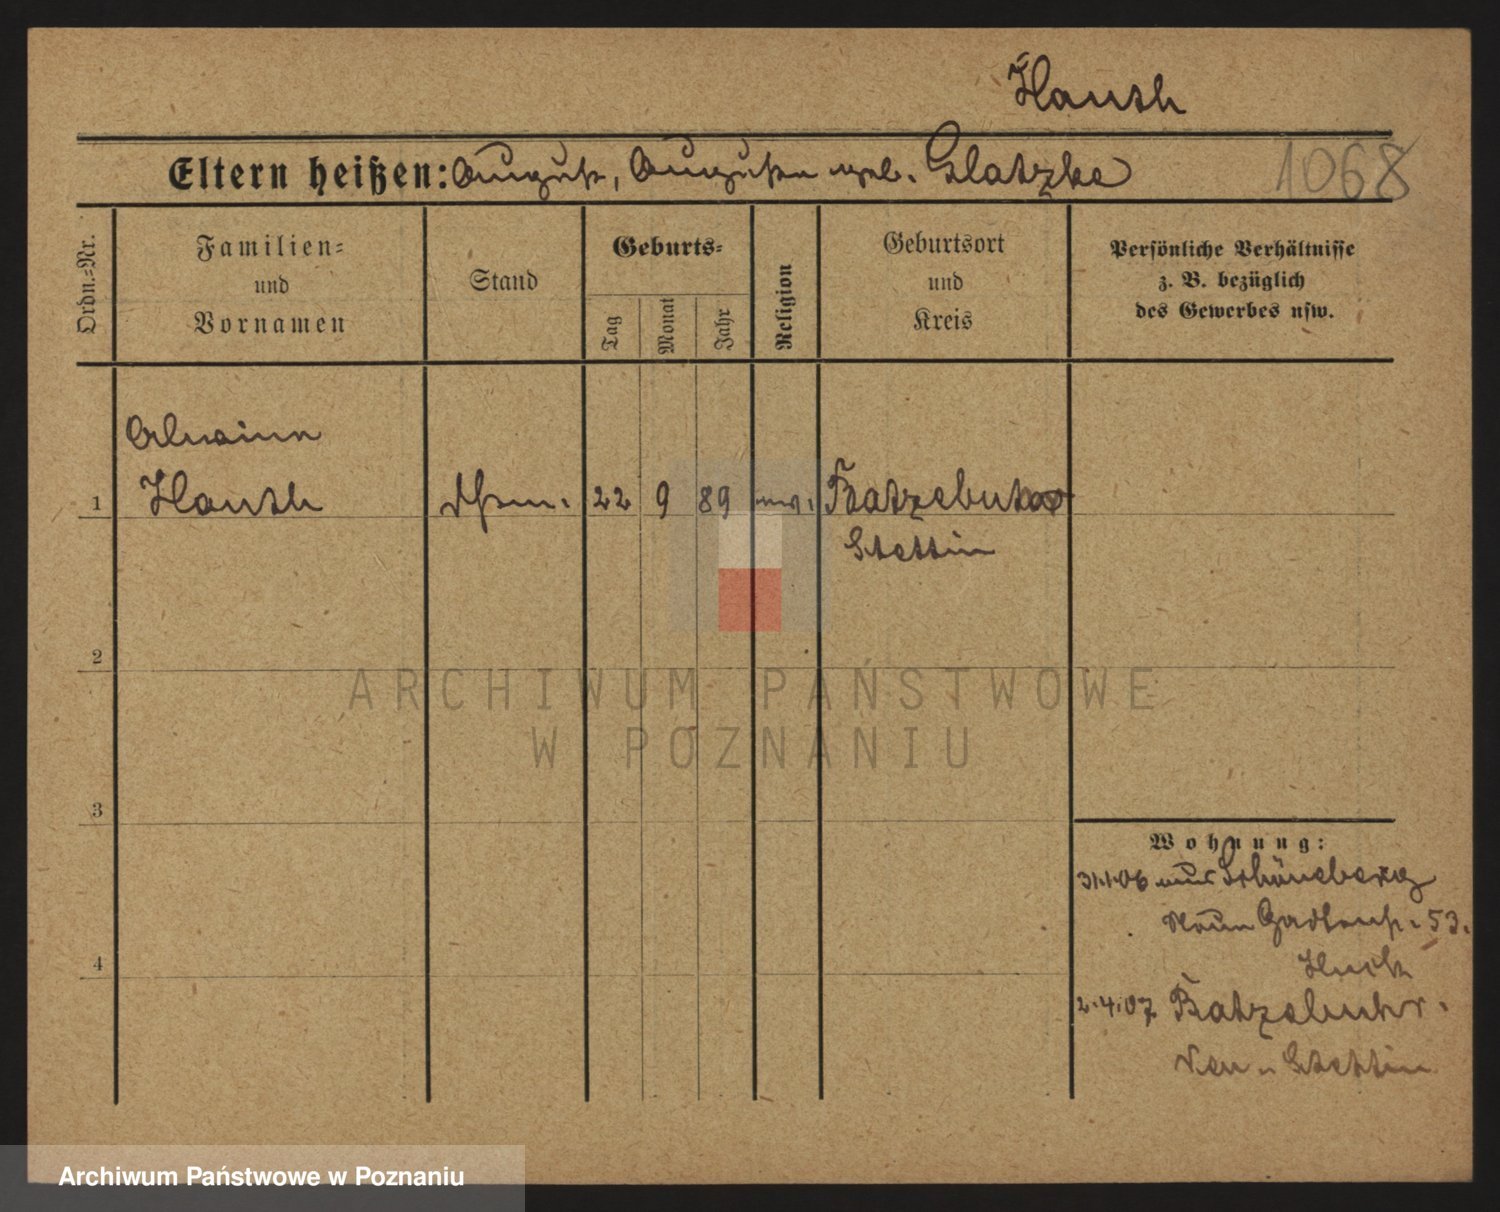 Hansch
Eltern heißen: August, Auguste geb. Glatzke
1068
Ordn.=Nr.
Familien=
und
Vornamen
Stand
Geburts=
Tag
Monat
Jahr
Religion
Geburtsort
und
Kreis
Persönliche Verhältnisse
z. B. bezüglich
des Gewerbes usw.
1
Hansch
22 9 89
Ratzebuhr
Stettin
2
3
4
ARCHIWUM PAŃSTWOWE
W POZNANIU
Wohnung:
31.1.06 Schöneberg
53.
2.4.07 Ratzebuhr.
Neu-Stettin
Archiwum Państwowe w Poznaniu